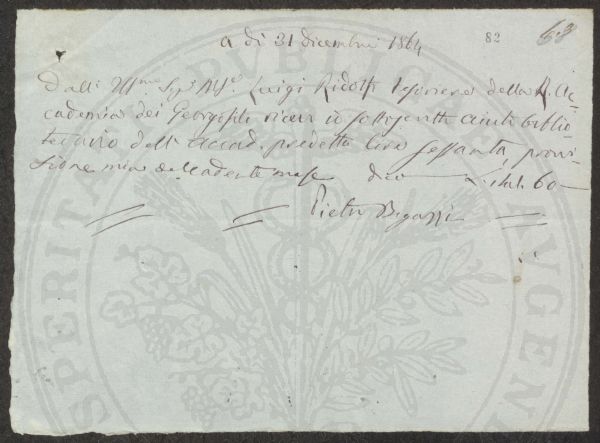 a dì 31 dicembre 1864
82
68
Dall' Ill.mo Sig. M.se Luigi Ridolfi Tesoriere della R. Ac-
cademia dei Georgofili ricevo io sottoscritto aiuto biblio-
tecario dell' Accad. predetta lire sessanta, provi-
sione mia del cadente mese dico L. ital. 60
Pietro Bigazzi
PROSPERITATI REIPUBLICAE AUGENDAE